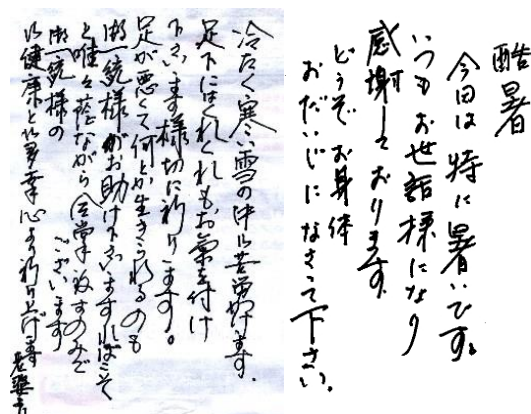 酷暑
今日は特に暑いです。
いつもお世話様になり
感謝しております。
どうぞお身体
おだいじになさって下さい。
冷たく寒い雪の中御苦労かけます。
足下にはくれぐれもお気を付け
下さいます様切に祈ります。
足が悪くて何とか生きられるのも
皆様がお助け下さいますればこそ
と唯々蔭ながら合掌致すのみで
ございます
様の
御健康と御多幸心より祈り上げます